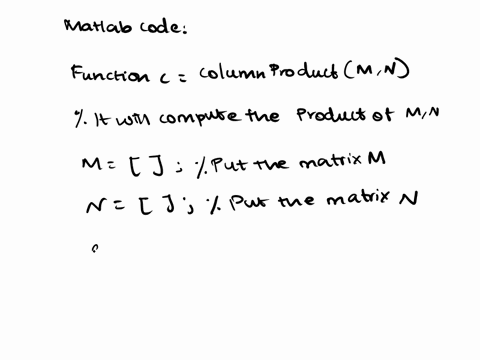 Matlab code:
Function c = columnProduct(M,N)
% It will compute the Product of M,N
M = [ ] ; % Put the matrix M
N = [ ] ; % Put the matrix N